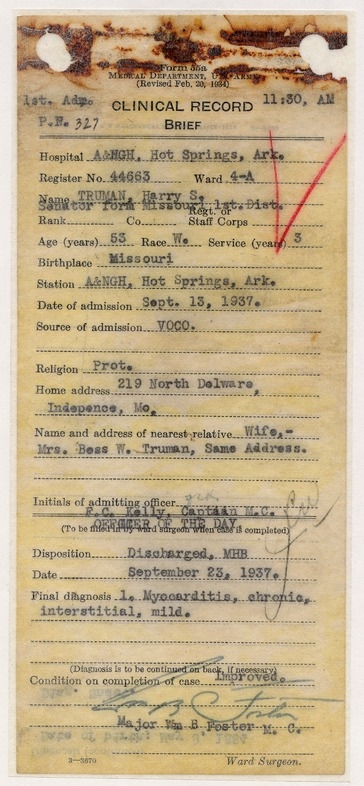 Form 55a
MEDICAL DEPARTMENT, U.S. ARMY
(Revised Feb. 20, 1934)
1st. Adm. 11:30, AM
CLINICAL RECORD
P.N. 327
BRIEF
Hospital A&NGH, Hot Springs, Ark.
Register No. 44663 Ward 4-A
Name TRUMAN, Harry S.
Senator form Missouri 1st. Dist.
Rank Co. Regt. or Staff Corps
Age (years) 53 Race W. Service (years) 3
Birthplace Missouri
Station A&NGH, Hot Springs, Ark.
Date of admission Sept. 13, 1937.
Source of admission VOCO.
Religion Prot.
Home address 219 North Delware,
Indepence, Mo.
Name and address of nearest relative Wife,-
Mrs. Bess W. Truman, Same Address.
Initials of admitting officer
F.C. Kelly, Captain M.C.
OFFICER OF THE DAY
(To be filled in by ward surgeon when case is completed)
Disposition Discharged, MHB
Date September 23, 1937.
Final diagnosis 1. Myocarditis, chronic,
interstitial, mild.
(Diagnosis is to be continued on back, if necessary)
Condition on completion of case Improved.
Wm B C Foster
Major Wm B Foster M. C.
3—3670 Ward Surgeon.